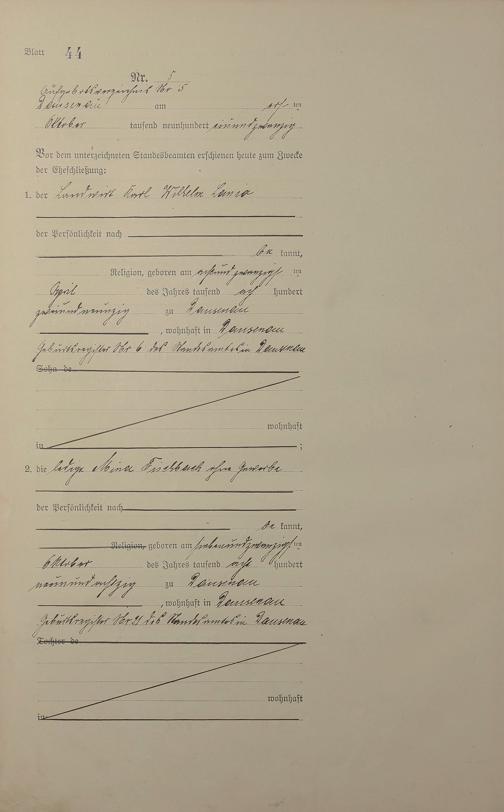 Blatt 44
Nr. 5
Aufgebotsverzeichnis Nr 5
Dausenau am ersten
Oktober tausend neunhundert einundzwanzig
Vor dem unterzeichneten Standesbeamten erschienen heute zum Zwecke
der Eheschließung:
1. der Landwirt Karl Wilhelm
der Persönlichkeit nach
be kannt,
Religion, geboren am achtundzwanzigsten
April des Jahres tausend acht hundert
zweiundneunzig zu Dausenau
, wohnhaft in Dausenau
Geburtsregister Nr 6 des Standesamtes in Dausenau
Sohn de
wohnhaft
in ;
2. die ledige Mina Fischbach ohne Gewerbe
der Persönlichkeit nach
be kannt,
Religion, geboren am siebenundzwanzigsten
Oktober des Jahres tausend acht hundert
neunundachtzig zu Dausenau
, wohnhaft in Dausenau
Geburtsregister Nr des Standesamtes in Dausenau
Tochter de
wohnhaft
in